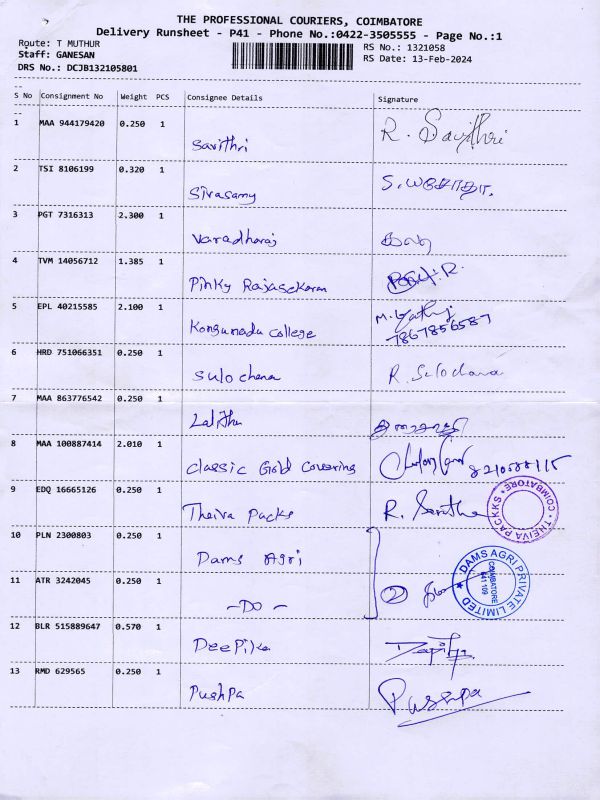 THE PROFESSIONAL COURIERS, COIMBATORE
Delivery Runsheet - P41 - Phone No.:0422-3505555 - Page No.:1
Route: T MUTHUR
Staff: GANESAN
DRS No.: DCJB132105801
RS No.: 1321058
RS Date: 13-Feb-2024
S No Consignment No Weight PCS Consignee Details Signature
1 MAA 944179420 0.250 1 Savithri R. Savithri
2 TSI 8106199 0.320 1 Sivasamy
3 PGT 7316313 2.300 1 Varadharaj
4 TVM 14056712 1.385 1 Pinky Rajasekaran
5 EPL 40215585 2.100 1 Kongunadu College
7867856587
6 HRD 751066351 0.250 1 Sulochana R. Sulochana
7 MAA 863776542 0.250 1 Lalitha
8 MAA 100887414 2.010 1 Classic Gold Covering
9 EDQ 16665126 0.250 1 Theiva Packs R.
THEIVA PACKKS * COIMBATORE *
10 PLN 2300803 0.250 1 Dams Agri
DAMS AGRI PRIVATE LIMITED
COIMBATORE
641 109
11 ATR 3242045 0.250 1 - DO - 2
12 BLR 515889647 0.570 1 Deepika
13 RMD 629565 0.250 1 Pushpa